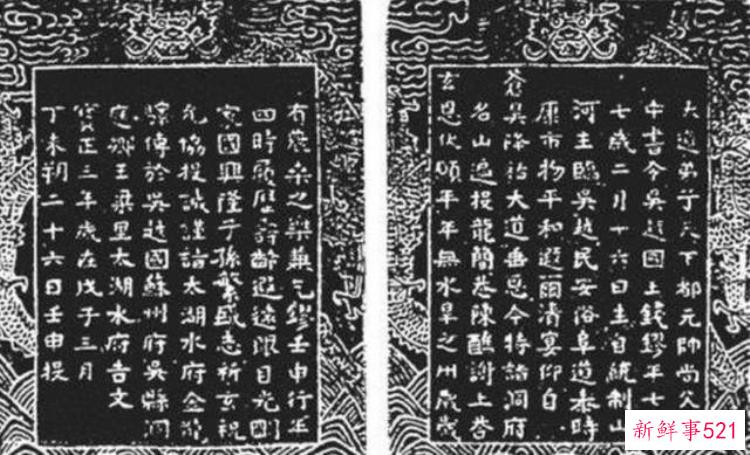 大道弟子天下都元帥尚父
中書令吳越國王錢鏐年七
七歲二月十六日生自統制山
河主臨吳越民安俗阜道泰時
康市物平和遐邇清宴仰自
蒼昊降祐大道垂恩今特詣洞府
名山遍投龍簡恭陳醮謝上答
玄恩伏願年年無水旱之州歲歲
有農桑之樂兼乞鏐壬申行年
四時履歷壽齡遐遠眼目光明
家國興隆子孫繁盛志祈玄祝
允協投誠謹詣太湖水府金龍
驛傳於吳越國蘇州府吳縣洞
庭鄉王梁里太湖水府告文
寶正三年歲在戊子三月
丁未朔二十六日壬申投
新鲜事521